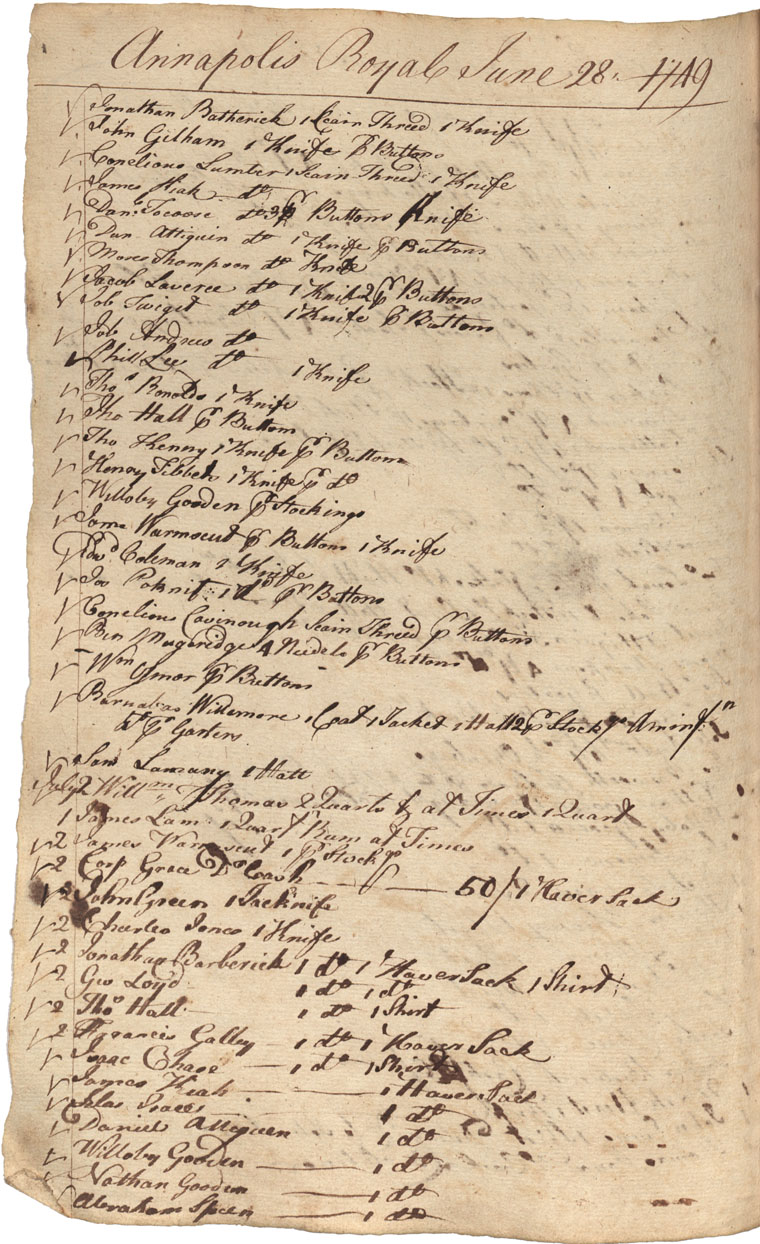 Annapolis Royal June 28. 1749
Jonathan Batherick 1 Scain Threed 1 Knife
John Gilham 1 Knife pr Buttons
Conelious Lumber 1 Scain Threed 1 Knife
James Keah do
Danl. Tocoose do 3 pr Buttons Knife
Dan. Attiquin do 1 Knife pr Buttons
Moses Thompson do Knife
Jacob Laveree do 1 Knife 2 pr Buttons
Job Twiget do 1 Knife pr Buttons
Job Andrew do
Phill Lee do 1 Knife
Thos Ronolds 1 Knife
Tho Hall pr Buttom
Tho Kenny 1 Knife pr Buttons
Henry Tibbets 1 Knife pr do
Willoby Gooden pr Stockings
Jams Warmsent pr Buttons 1 Knife
Edwd Coleman 1 Knife
Jos Poknit 1 do pr Buttons
Conelious Cavinough Scain Threed pr Buttons
Ben Mugeridge 4 Needels pr Buttons
Wm Osmor pr Buttons
Barnabas Willemore 1 Coat 1 Jacket 1 Hatt 2 pr Stock
pr Garters
Saml Lamany 1 Hatt
July 2 Willm Thomas 2 Quarts & at Times 1 Quart
1 James Lam 1 Quart Rum at Times
2 James Warmsent 1 pr Stockgs
2 Corp Grace Do Cash 50/ 1 Haver Sack
2 John Green 1 Jacknife
2 Charles Jones 1 Knife
2 Jonathan Barberick 1 do 1 Haver Sack 1 Shirt
2 Geo Loyd 1 do 1 do
2 Thos Hall 1 do 1 Shirt
2 Francis Galley 1 do 1 Haver Sack
Isaac Chase 1 do 1 Shirt
James Keah 1 Haver Sack
Silas Isaces 1 do
Daniel Attiquen 1 do
Willoby Gooden 1 do
Nathan Gooden 1 do
Abraham Speen 1 do